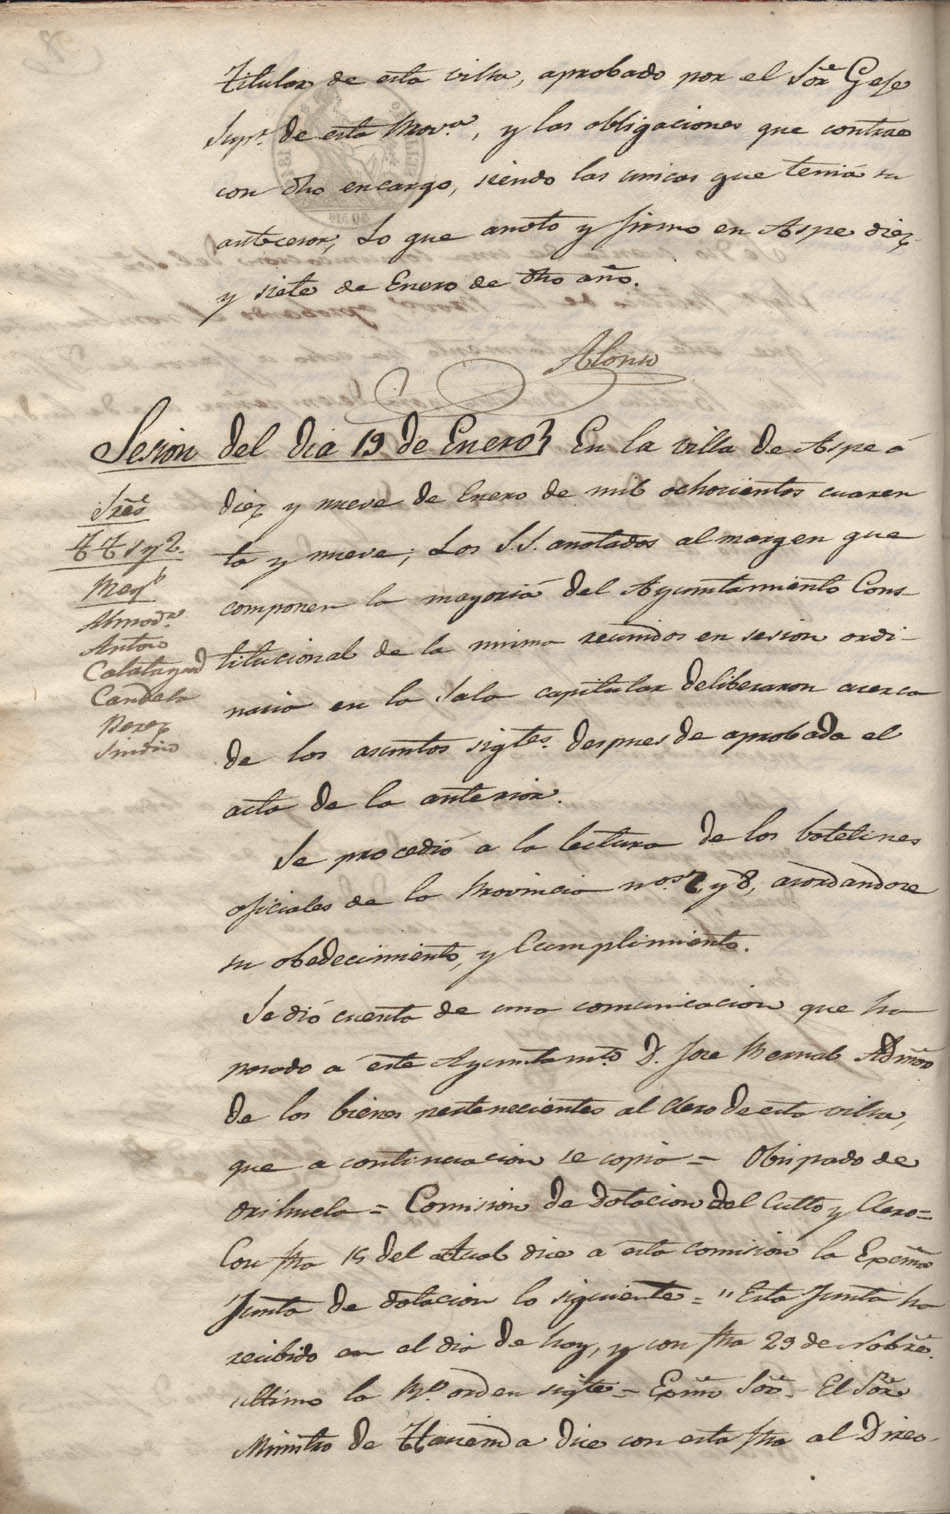 titular de esta villa, aprobado por el Sōr Gefe
Supr. de esta Prov.ª, y las obligaciones que contrae
con dho encargo, siendo las unicas que tenia su
antecesor; Lo que anoto y firmo en Aspe diez
y siete de Enero de dho año.
Alonso
Sesion del dia 19 de Enero} En la villa de Aspe á
diez y nueve de Enero de mil ochocientos cuaren
ta y nueve; Los S.S. anotados al margen que
componen la mayoria del Ayuntamiento Cons-
titucional de la misma reunidos en sesion ordi-
naria en la Sala capitular deliberaron acerca
de los asuntos sigtes. despues de aprobada el
acta de la anterior.
Sres
TT 1 y 2.
Almod.r
Antoro
Calatayud
Candela
Perez
Sindico
Se procedió a la lectura de los boletines
oficiales de la Provincia nos. 7, y 8, acordandose
su obedecimiento, y Cumplimiento.
Se dió cuenta de una comunicacion que ha
pasado á este Ayuntamto. D. Jose Bernal Admōr
de los bienes pertenecientes al Clero de esta villa,
que a continuacion se copia = Obispado de
Orihuela = Comision de dotacion del Culto y Clero =
Con fha 15 del actual dice á esta comision la Excma
Junta de dotacion lo siguiente = "Esta Junta ha
recibido en el dia de hoy, y con fha 29 de Nobre.
ultimo la Rl. orden sigte = Excmo Sōr = El Sōr
Ministro de Hacienda dice con esta fha al Direc-